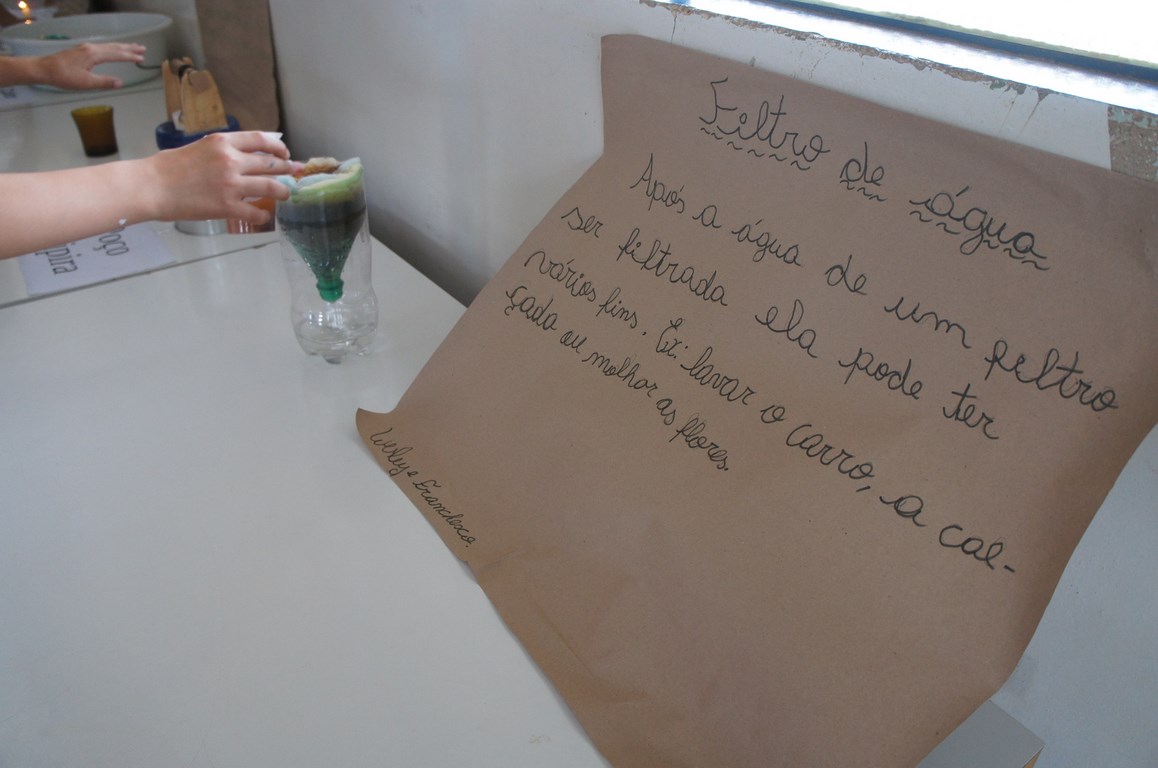 Filtro de água
Após a água de um filtro
ser filtrada ela pode ter
vários fins. Ex: lavar o carro, a cal-
çada ou molhar as flores.
Wesley e Francesco.
oço
ipira